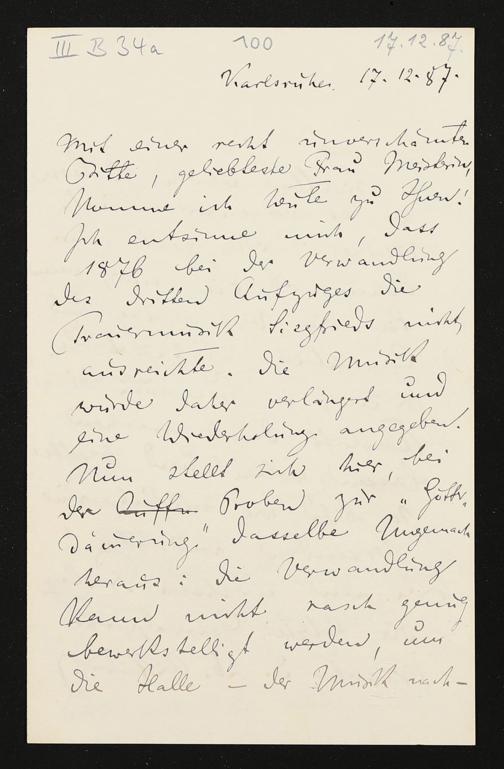 III B 34a 100 17.12.87.
Karlsruhe. 17. 12. 87.
Mit einer recht unverschämten
Bitte, geliebteste Frau Meisterin,
komme ich heute zu Ihnen!
Ich entsinne mich, dass
1876 bei der Verwandlung
des dritten Aufzuges die
Trauermusik Siegfrieds nicht
ausreichte. Die Musik
wurde daher verlängert und
eine Wiederholung angegeben.
Nun stellt sich hier, bei
der Proben zur „Götter
dämmerung" dasselbe Ungemach
heraus: die Verwandlung
kann nicht rasch genug
bewerkstelligt werden, um
die Halle – der Musik nach–